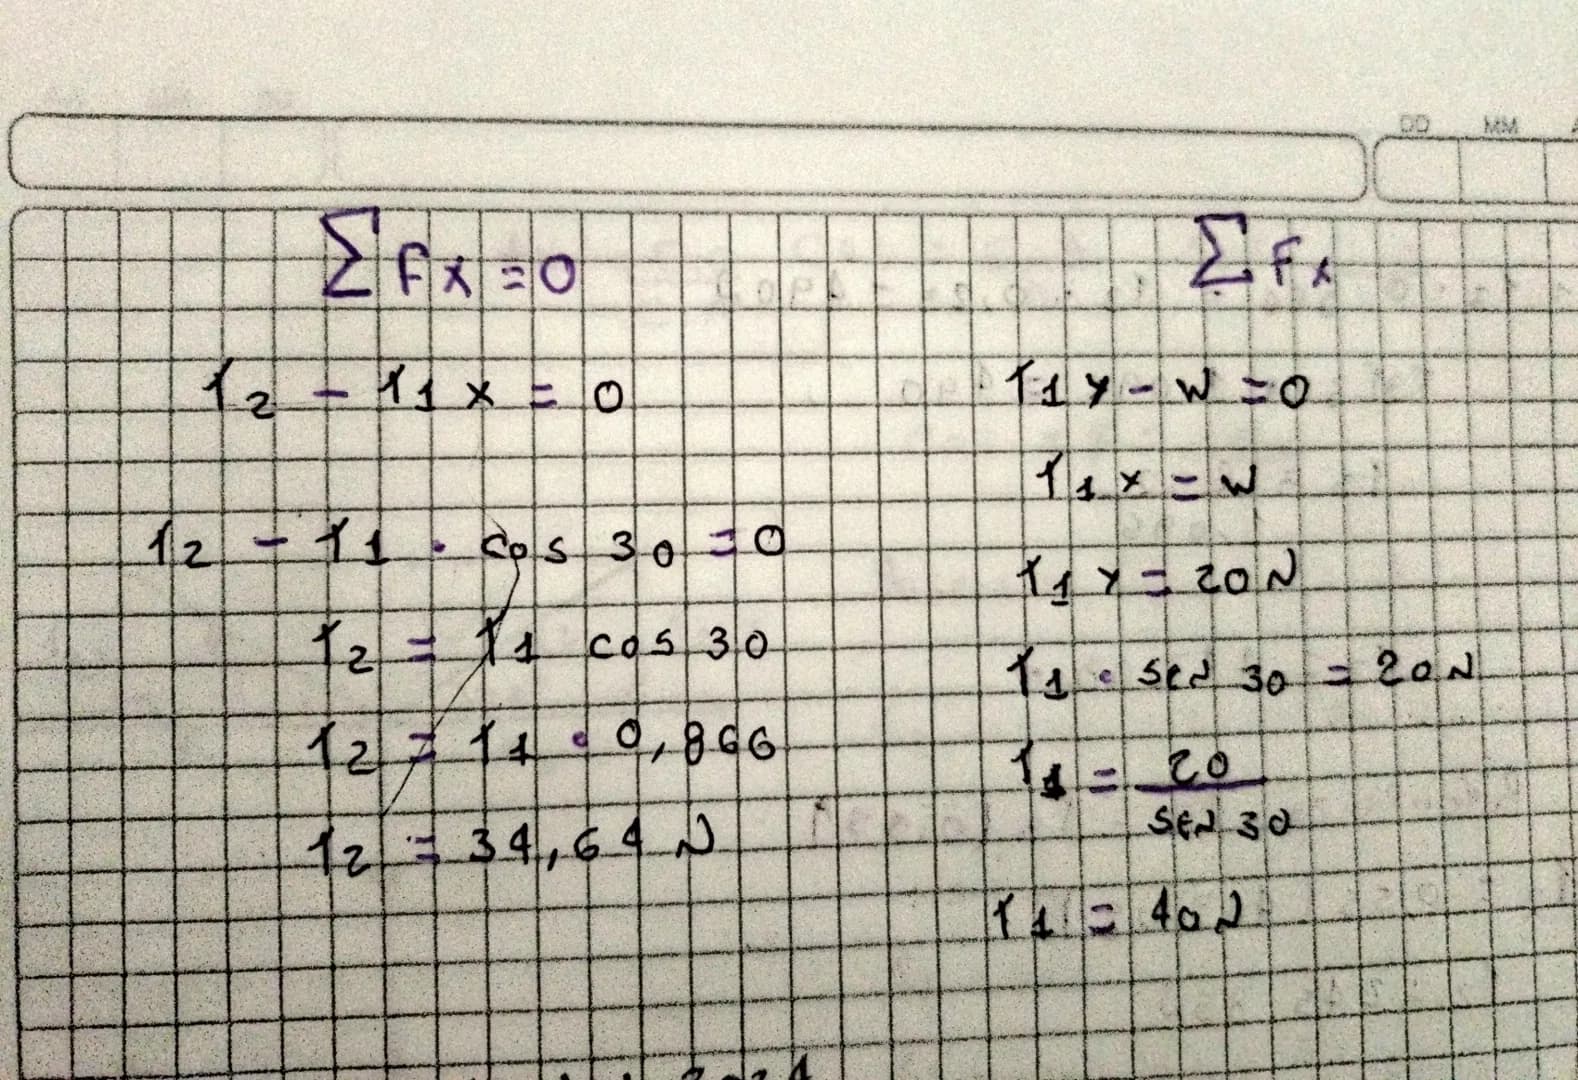 DD MM
∑Fx = 0
T2 - T1x = 0
T2 - T1 · cos 30 = 0
T2 = T1 cos 30
T2 = T1 · 0,866
T2 = 34,64 N
∑Fx
T1y - W = 0
T1x = W
T1y = 20N
T1 · sen 30 = 20N
T1 = 20
sen 30
T1 = 40N